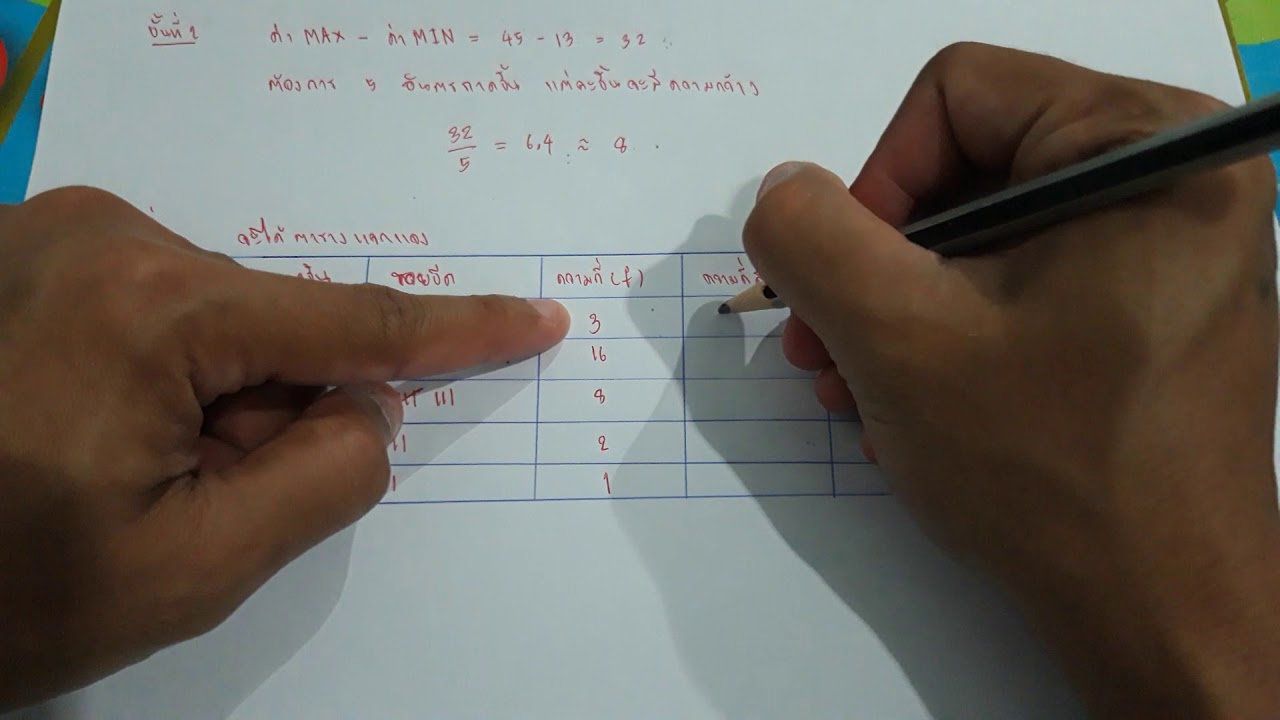 ขั้นที่ 2 ค่า MAX - ค่า MIN = 45 - 13 = 32
ต้องการ 5 อันตรภาคชั้น แต่ละชั้นจะมีความกว้าง
32/5 = 6.4 ≈ 8
จะได้ตารางแจกแจง
ชั้น รอยขีด ความถี่ (f) ความถี่
3
16
III 8
II 2
I 1